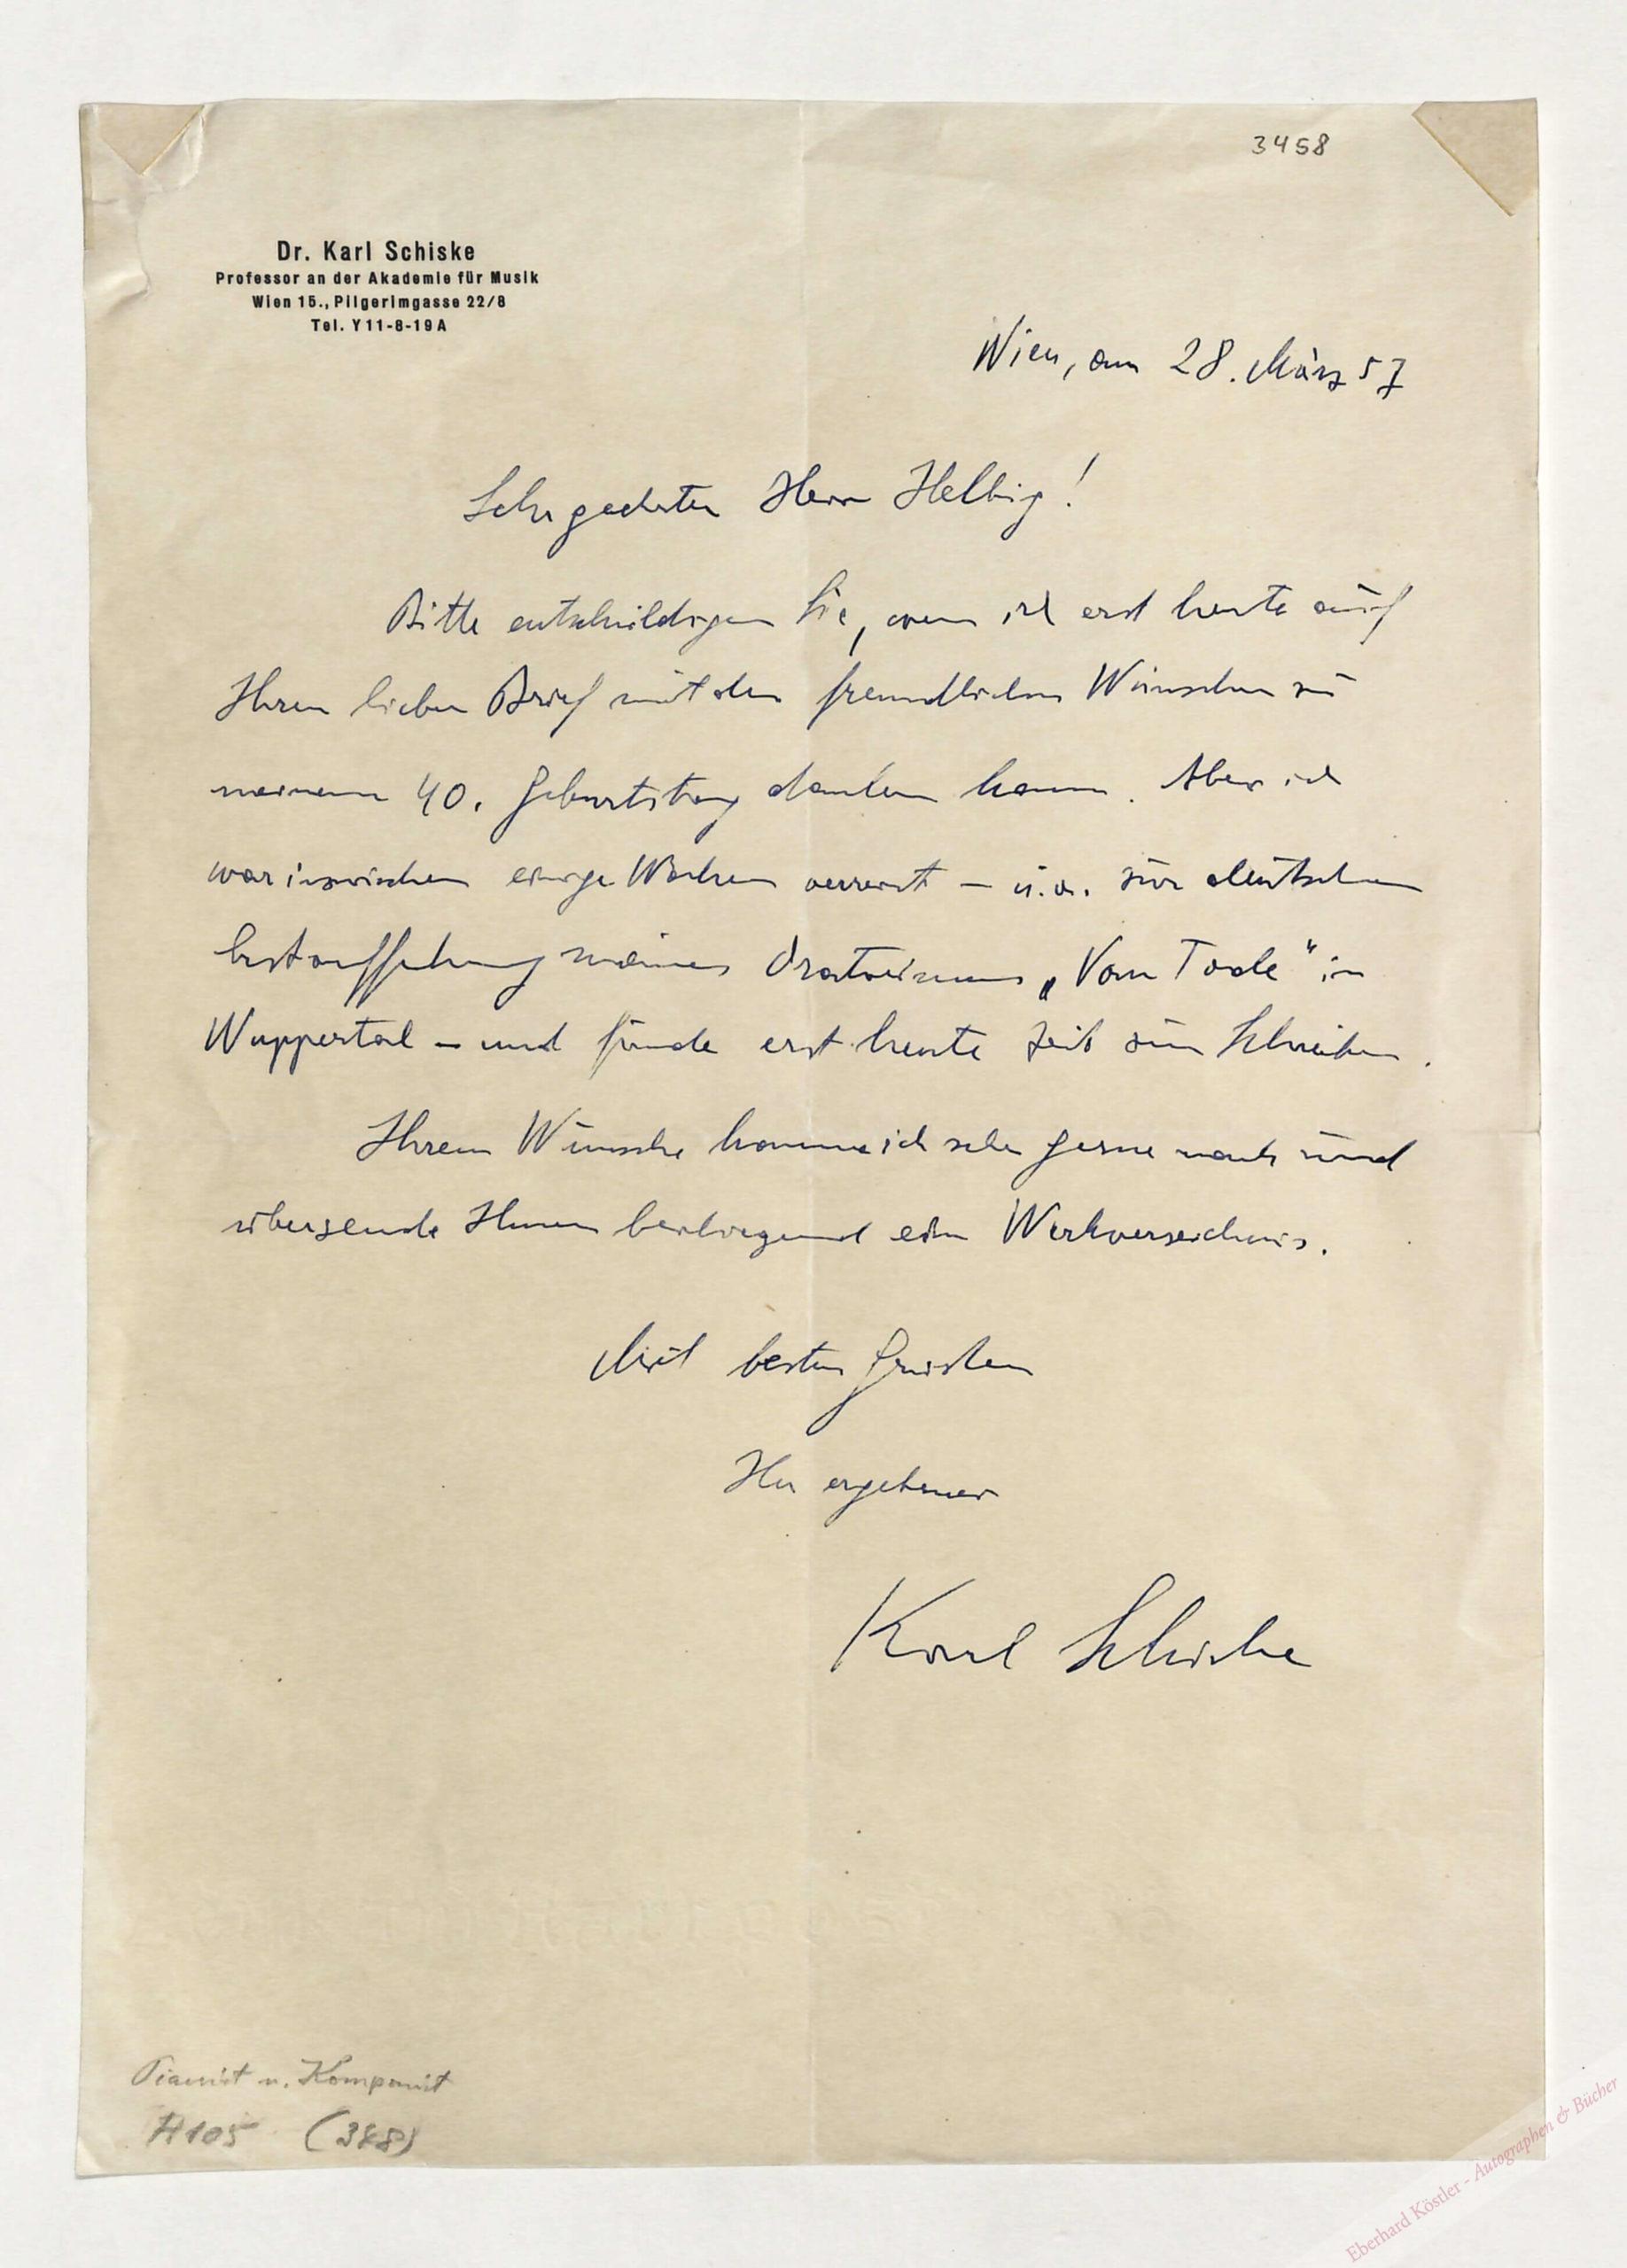 3458
Dr. Karl Schiske
Professor an der Akademie für Musik
Wien 15., Pilgerimgasse 22/8
Tel. Y 11-8-19 A
Wien, am 28. März 57
Sehr geehrter Herr Helbig!
Bitte entschuldigen Sie, wenn ich erst heute auf
Ihren lieben Brief mit den freundlichen Wünschen zu
meinem 40. Geburtstag danken kann. Aber ich
war inzwischen einige Wochen verreist – u.a. zur deutschen
Erstaufführung meines Oratoriums „Vom Tode" in
Wuppertal – und finde erst heute Zeit zum Schreiben.
Ihrem Wunsche komme ich sehr gerne nach und
übersende Ihnen beiliegend ein Werkverzeichnis.
Mit besten Grüssen
Ihr ergebener
Karl Schiske
Pianist u. Komponist
A105
Eberhard Köstler - Autographen & Bücher